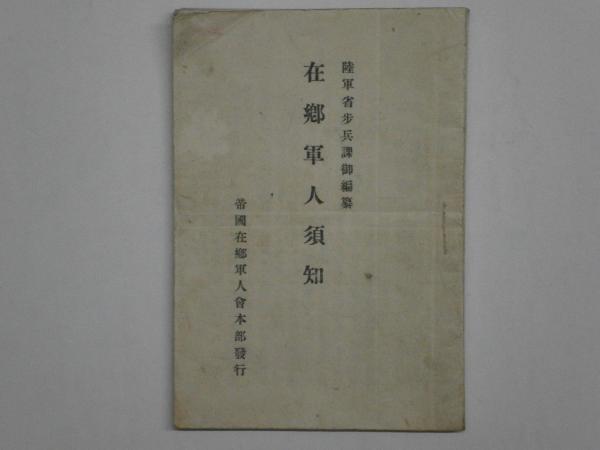 陸軍省步兵課御編纂
在鄉軍人須知
帝國在鄉軍人會本部發行